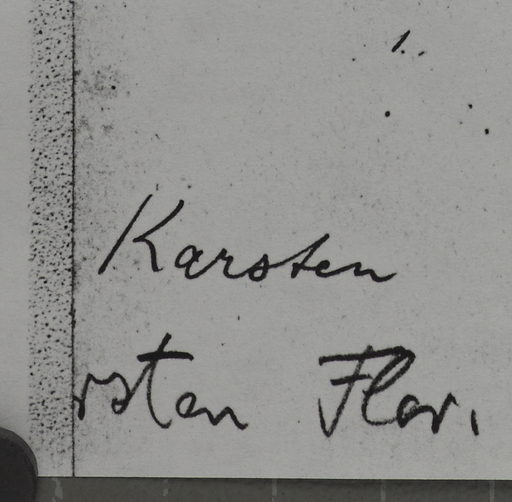 Karsten
rsten Flor.